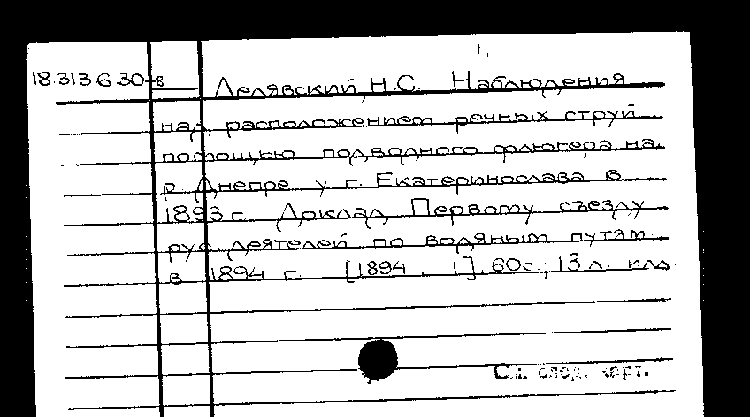 18.313630-в Лелявский, Н.С. Наблюдения
над расположением речных струй
помощью подводного флюгера на
р Днепре у г. Екатеринослава в
1893 г. Доклад Первому съезду
рус деятелей по водяным путям
в 1894 г. [1894. 1]. 60с., 13 л.
См. след. карт.